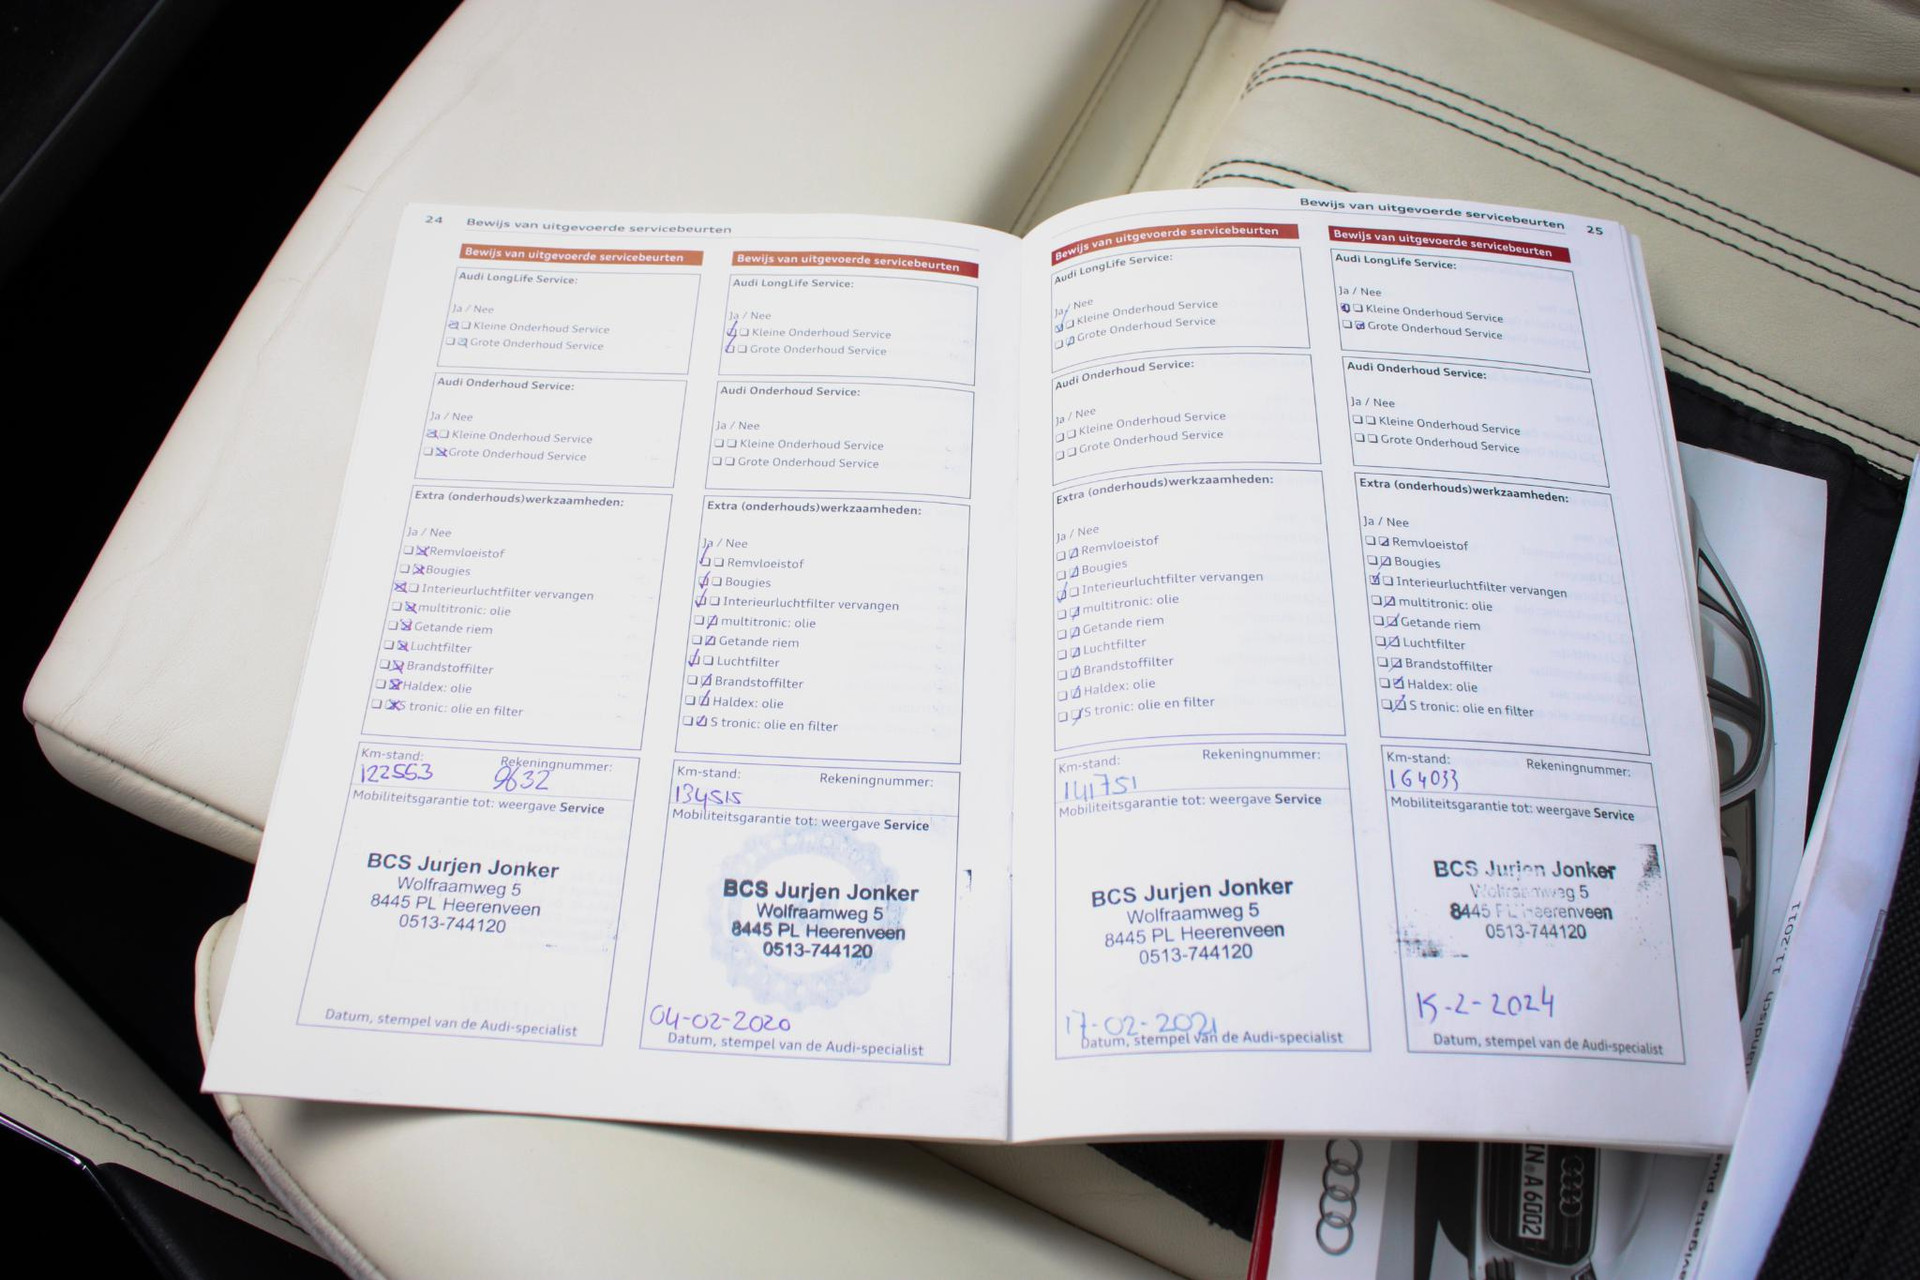 24 Bewijs van uitgevoerde servicebeurten
Bewijs van uitgevoerde servicebeurten
Audi LongLife Service:
Ja / Nee
Kleine Onderhoud Service
Grote Onderhoud Service
Audi Onderhoud Service:
Ja / Nee
Kleine Onderhoud Service
Grote Onderhoud Service
Extra (onderhouds)werkzaamheden:
Ja / Nee
Remvloeistof
Bougies
Interieurluchtfilter vervangen
multitronic: olie
Getande riem
Luchtfilter
Brandstoffilter
Haldex: olie
S tronic: olie en filter
Km-stand: Rekeningnummer:
122553 9632
Mobiliteitsgarantie tot: weergave Service
BCS Jurjen Jonker
Wolfraamweg 5
8445 PL Heerenveen
0513-744120
Datum, stempel van de Audi-specialist
Bewijs van uitgevoerde servicebeurten
Audi LongLife Service:
Ja / Nee
Kleine Onderhoud Service
Grote Onderhoud Service
Audi Onderhoud Service:
Ja / Nee
Kleine Onderhoud Service
Grote Onderhoud Service
Extra (onderhouds)werkzaamheden:
Ja / Nee
Remvloeistof
Bougies
Interieurluchtfilter vervangen
multitronic: olie
Getande riem
Luchtfilter
Brandstoffilter
Haldex: olie
S tronic: olie en filter
Km-stand: Rekeningnummer:
134515
Mobiliteitsgarantie tot: weergave Service
BCS Jurjen Jonker
Wolfraamweg 5
8445 PL Heerenveen
0513-744120
04-02-2020
Datum, stempel van de Audi-specialist
Bewijs van uitgevoerde servicebeurten 25
Bewijs van uitgevoerde servicebeurten
Audi LongLife Service:
Ja / Nee
Kleine Onderhoud Service
Grote Onderhoud Service
Audi Onderhoud Service:
Ja / Nee
Kleine Onderhoud Service
Grote Onderhoud Service
Extra (onderhouds)werkzaamheden:
Ja / Nee
Remvloeistof
Bougies
Interieurluchtfilter vervangen
multitronic: olie
Getande riem
Luchtfilter
Brandstoffilter
Haldex: olie
S tronic: olie en filter
Km-stand: Rekeningnummer:
141751
Mobiliteitsgarantie tot: weergave Service
BCS Jurjen Jonker
Wolfraamweg 5
8445 PL Heerenveen
0513-744120
17-02-2021
Datum, stempel van de Audi-specialist
Bewijs van uitgevoerde servicebeurten
Audi LongLife Service:
Ja / Nee
Kleine Onderhoud Service
Grote Onderhoud Service
Audi Onderhoud Service:
Ja / Nee
Kleine Onderhoud Service
Grote Onderhoud Service
Extra (onderhouds)werkzaamheden:
Ja / Nee
Remvloeistof
Bougies
Interieurluchtfilter vervangen
multitronic: olie
Getande riem
Luchtfilter
Brandstoffilter
Haldex: olie
S tronic: olie en filter
Km-stand: Rekeningnummer:
164033
Mobiliteitsgarantie tot: weergave Service
BCS Jurjen Jonker
Wolfraamweg 5
8445 PL Heerenveen
0513-744120
15-2-2024
Datum, stempel van de Audi-specialist
11.2011
IN A 6002